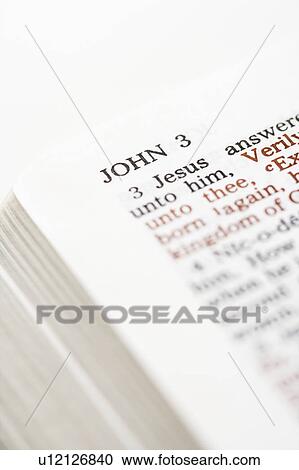 JOHN 3
3 Jesus answere
unto him, Verily
unto thee, cEx
born again,
kingdom of
4 Nic-o-dé
him, How
when he
FOTOSEARCH®
u12126840 www.fotosearch.com